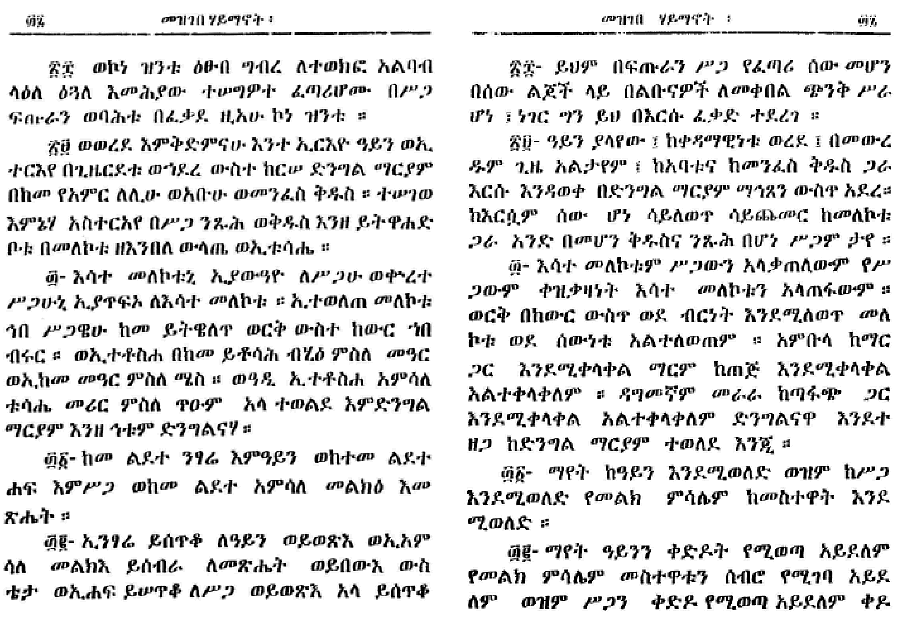 ፴፯ መዝገበ ሃይማኖት ፡
፳፰ ወኮነ ዝንቱ ዕፁበ ግብረ ለተወክፎ አልባብ
ላዕለ ዕጓለ እመሕያው ተሠግዎተ ፈጣሪሆሙ በሥጋ
ፍጡራን ወባሕቱ በፈቃደ ዚአሁ ኮነ ዝንቱ ።
፳፱ ወወረደ እምቅድምናሁ እንተ ኢርእዮ ዓይን ወኢ
ተርእየ በጊዜርደቱ ወኀደረ ውስተ ከርሠ ድንግል ማርያም
በከመ የአምር ለሊሁ ወአቡሁ ወመንፈስ ቅዱስ ። ተሠገወ
እምኔሃ አስተርአየ በሥጋ ንጹሕ ወቅዱስ እንዘ ይትዋሐድ
ቦቱ በመለኮቱ ዘእንበለ ውላጤ ወኢቱሳሔ ።
፴- እሳተ መለኮቱኒ ኢያውዓዮ ለሥጋሁ ወቍረተ
ሥጋሁኒ ኢያጥፍኦ ለእሳተ መለኮቱ ። ኢተወለጠ መለኮቱ
ኅበ ሥጋዌሁ ከመ ይትዌለጥ ወርቅ ውስተ ከውር ኀበ
ብሩር ። ወኢተቶስሐ በከመ ይቶሳሕ ብሂዕ ምስለ መዓር
ወአ.ከመ መዓር ምስለ ሜስ ። ወዓዲ ኢተቶስሐ አምሳለ
ቱሳሔ መሪር ምስለ ጥዑም አላ ተወልደ እምድንግል
ማርያም እንዘ ኅቱም ድንግልናሃ ።
፴፩- ከመ ልደተ ንፃሬ እምዓይን ወከተመ ልደተ
ሐፍ እምሥጋ ወከመ ልደተ አምሳለ መልክዕ እመ
ጽሔት ።
፴፪- ኢንፃሬ ይሰጥቆ ለዓይን ወይወጽእ ወኢአም
ሳለ መልክእ ይሰብራ ለመጽሔት ወይበውእ ውስ
ቴታ ወኢሐፍ ይሠጥቆ ለሥጋ ወይወጽእ አላ ይሰጥቆ
መዝገበ ሃይማኖት ፡ ፴፯
፳፰- ይህም በፍጡራን ሥጋ የፈጣሪ ሰው መሆን
በሰው ልጆች ላይ በልቡናዎች ለመቀበል ጭንቅ ሥራ
ሆነ ፤ ነገር ግን ይህ በእርሱ ፈቃድ ተደረገ ።
፳፱- ዓይን ያላየው ፤ ከቀዳማዊነቱ ወረደ ፤ በመውረ
ዱም ጊዜ አልታየም ፤ ከአባቱና ከመንፈስ ቅዱስ ጋራ
እርሱ እንዳወቀ በድንግል ማርያም ማኅፀን ውስጥ አደረ።
ከእርሷም ሰው ሆነ ሳይለወጥ ሳይጨመር ከመለኮቱ
ጋራ አንድ በመሆን ቅዱስና ንጹሕ በሆነ ሥጋም ታየ ።
፴- እሳተ መለኮቱም ሥጋውን አላቃጠለውም የሥ
ጋውም ቀዝቃዛነት እሳተ መለኮቱን አላጠፋውም ።
ወርቅ በከውር ውስጥ ወደ ብርነት እንደሚለወጥ መለ
ኮቱ ወደ ሰውነቱ አልተለወጠም ። አምቡላ ከማር
ጋር እንደሚቀላቀል ማርም ከጠጅ እንደሚቀላቀል
አልተቀላቀለም ። ዳግመኛም መራራ ከጣፋጭ ጋር
እንደሚቀላቀል አልተቀላቀለም ድንግልናዋ እንደተ
ዘጋ ከድንግል ማርያም ተወለደ እንጂ ።
፴፩- ማየት ከዓይን እንደሚወለድ ወዝም ከሥጋ
እንደሚወለድ የመልክ ምሳሌም ከመስተዋት እንደ
ሚወለድ ።
፴፪- ማየት ዓይንን ቀድዶት የሚወጣ አይደለም
የመልክ ምሳሌም መስተዋቱን ሰብሮ የሚገባ አይደ
ለም ወዝም ሥጋን ቀድዶ የሚወጣ አይደለም ቀዶ